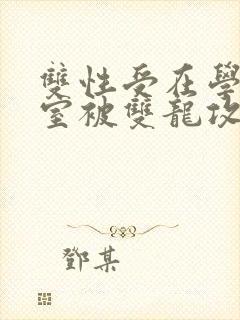 雙性受在學
室被雙龍攻
鄧某